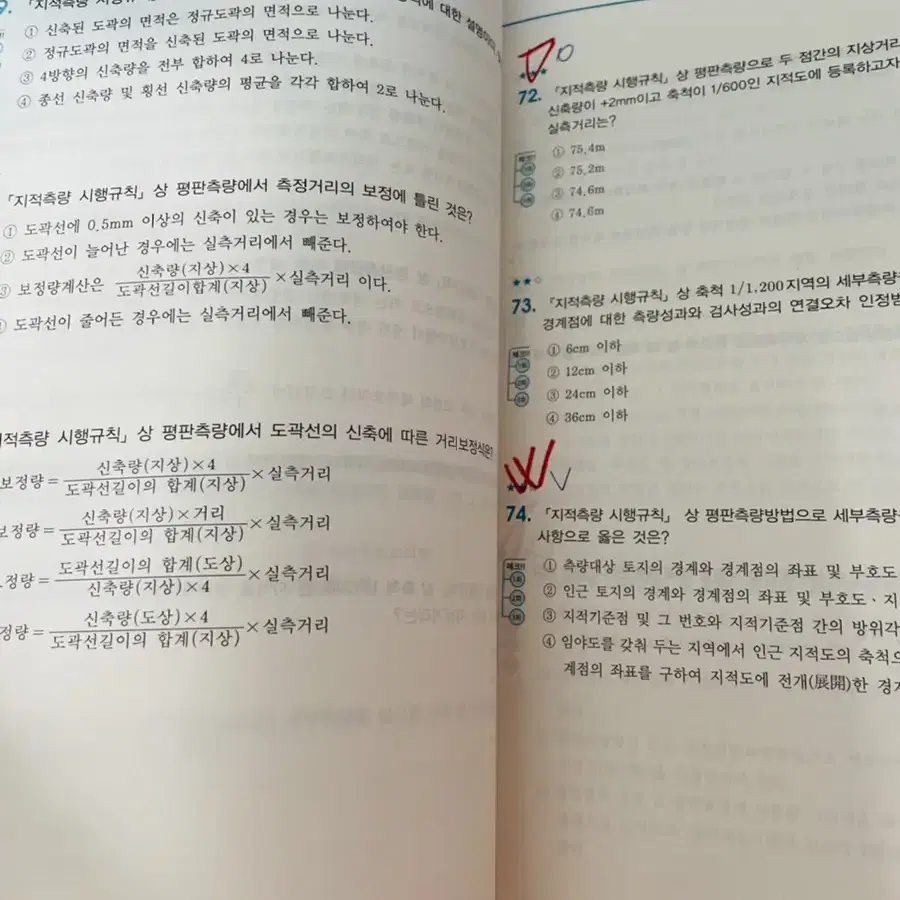 ① 신축된 도곽의 면적은 정규도곽의 면적으로 나눈다.
② 정규도곽의 면적을 신축된 도곽의 면적으로 나눈다.
③ 4방향의 신축량을 전부 합하여 4로 나눈다.
④ 종선 신축량 및 횡선 신축량의 평균을 각각 합하여 2로 나눈다.
「지적측량 시행규칙」상 평판측량에서 측정거리의 보정에 틀린 것은?
① 도곽선에 0.5mm 이상의 신축이 있는 경우는 보정하여야 한다.
② 도곽선이 늘어난 경우에는 실측거리에서 빼준다.
③ 보정량계산은 신축량(지상)×4 / 도곽선길이합계(지상) ×실측거리 이다.
도곽선이 줄어든 경우에는 실측거리에서 빼준다.
시행규칙」상 평판측량에서 도곽선의 신축에 따른 거리보정식은?
보정량 = 신축량(지상)×4 / 도곽선길이의 합계(지상) ×실측거리
보정량 = 신축량(지상)×거리 / 도곽선길이의 합계(지상) ×실측거리
정량 = 도곽선길이의 합계(도상) / 신축량(지상)×4 ×실측거리
정량 = 신축량(도상)×4 / 도곽선길이의 합계(지상) ×실측거리
72. 「지적측량 시행규칙」상 평판측량으로 두 점간의 지상거리
신축량이 +2mm이고 축척이 1/600인 지적도에 등록하고자
실측거리는?
① 75.4m
② 75.2m
③ 74.6m
④ 74.6m
73. 「지적측량 시행규칙」상 축척 1/1,200지역의 세부측량
경계점에 대한 측량성과와 검사성과의 연결오차 인정범
① 6cm 이하
② 12cm 이하
③ 24cm 이하
④ 36cm 이하
74. 「지적측량 시행규칙」 상 평판측량방법으로 세부측량
사항으로 옳은 것은?
① 측량대상 토지의 경계와 경계점의 좌표 및 부호도
② 인근 토지의 경계와 경계점의 좌표 및 부호도 · 지
③ 지적기준점 및 그 번호와 지적기준점 간의 방위각
④ 임야도를 갖춰 두는 지역에서 인근 지적도의 축척으
계점의 좌표를 구하여 지적도에 전개(展開)한 경계